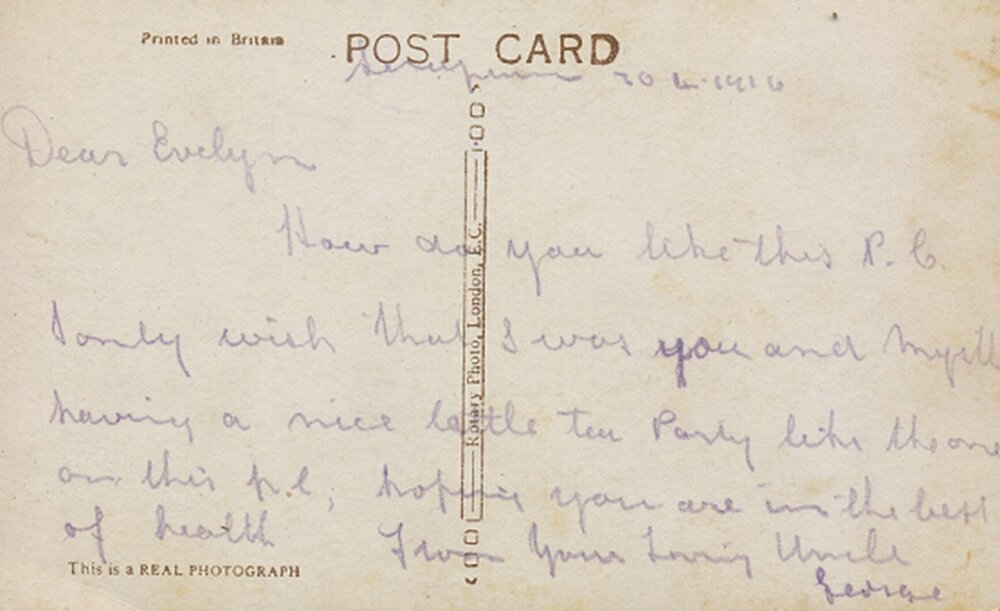 Printed in Britain
POST CARD
Serapeum 30 4 1916
Dear Evelyn
How do you like this P. C.
I only wish that I was you and
having a nice little tea Party like the one
on this p.c, hoping you are in the best
of health From Your Loving Uncle
George
Rotary Photo, London, E.C.
This is a REAL PHOTOGRAPH